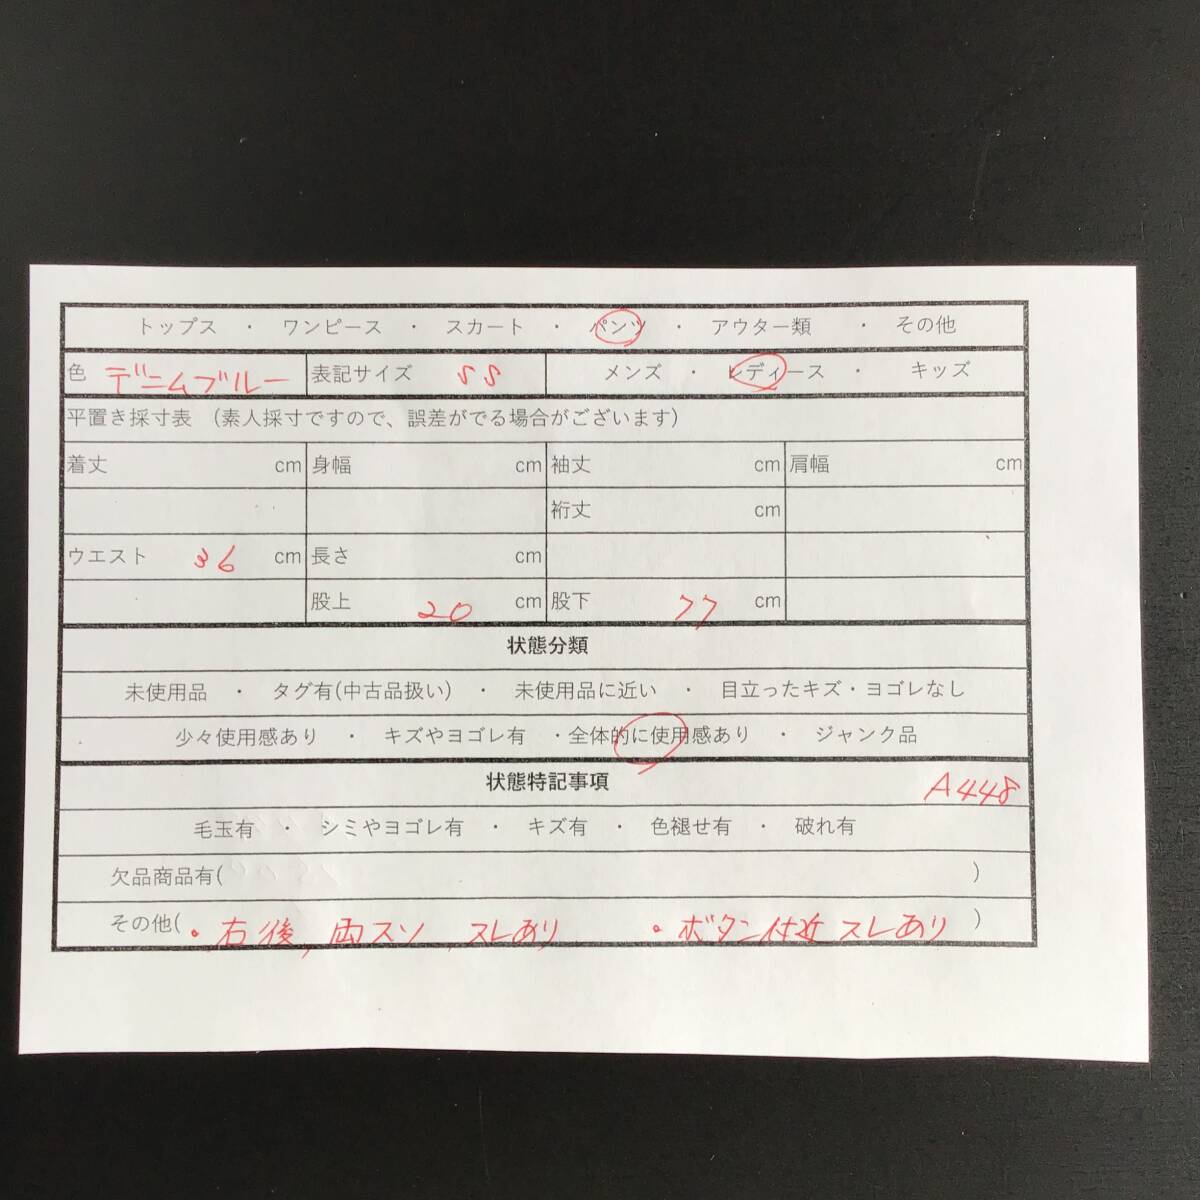 トップス ・ ワンピース ・ スカート ・ パンツ ・ アウター類 ・ その他
色 デニムブルー 表記サイズ SS メンズ ・ レディース ・ キッズ
平置き採寸表 (素人採寸ですので、誤差がでる場合がございます)
着丈 cm 身幅 cm 袖丈 cm 肩幅 cm
裄丈 cm
ウエスト 36 cm 長さ cm
股上 20 cm 股下 77 cm
状態分類
未使用品 ・ タグ有(中古品扱い) ・ 未使用品に近い ・ 目立ったキズ・ヨゴレなし
少々使用感あり ・ キズやヨゴレ有 ・全体的に使用感あり ・ ジャンク品
状態特記事項 A448
毛玉有 ・ シミやヨゴレ有 ・ キズ有 ・ 色褪せ有 ・ 破れ有
欠品商品有( )
その他( ・右後、両スソ、スレあり ・ボタン付近スレあり )